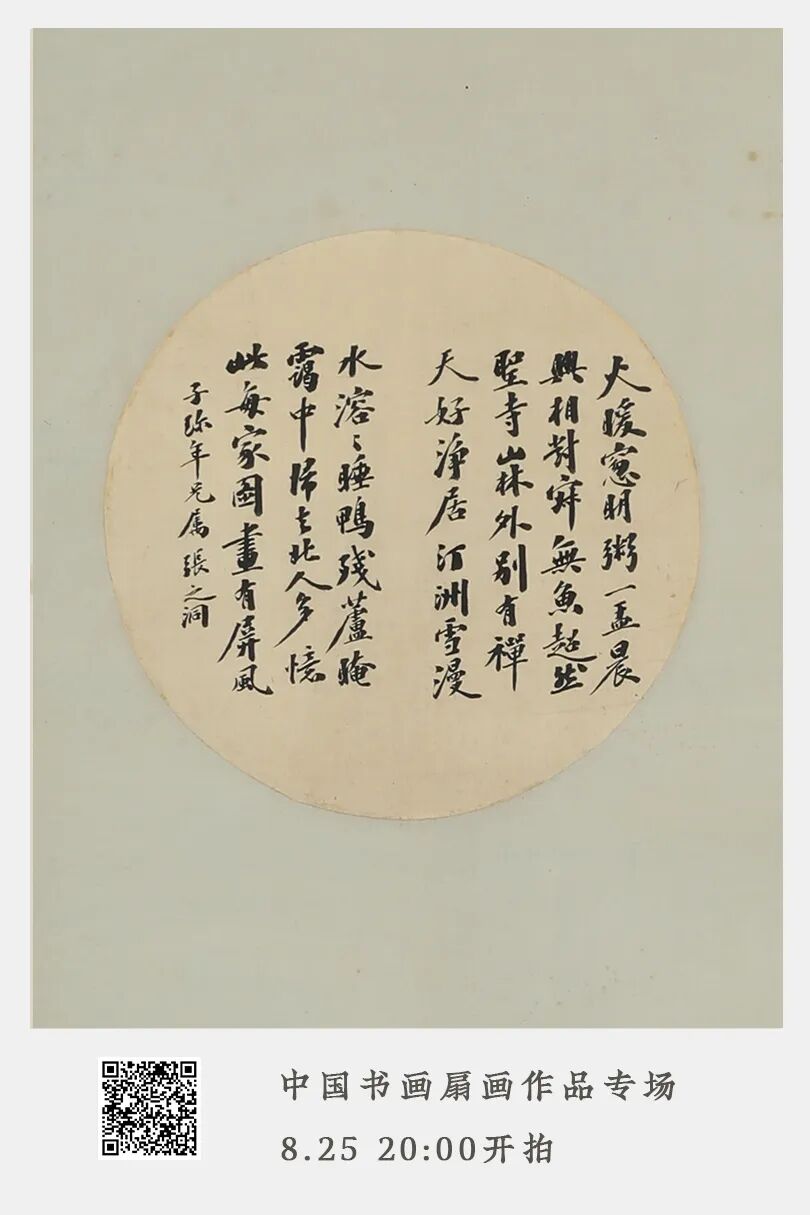 火暖窻明粥一盂晨
興相對寂無魚超然
聖寺山林外別有禪
天好淨居 汀洲雪漫
水溶〻睡鴨殘蘆晻
靄中歸去北人多憶
此每家圖畫有屏風
子弥年兄属張之洞
中国书画扇画作品专场
8.25 20:00开拍